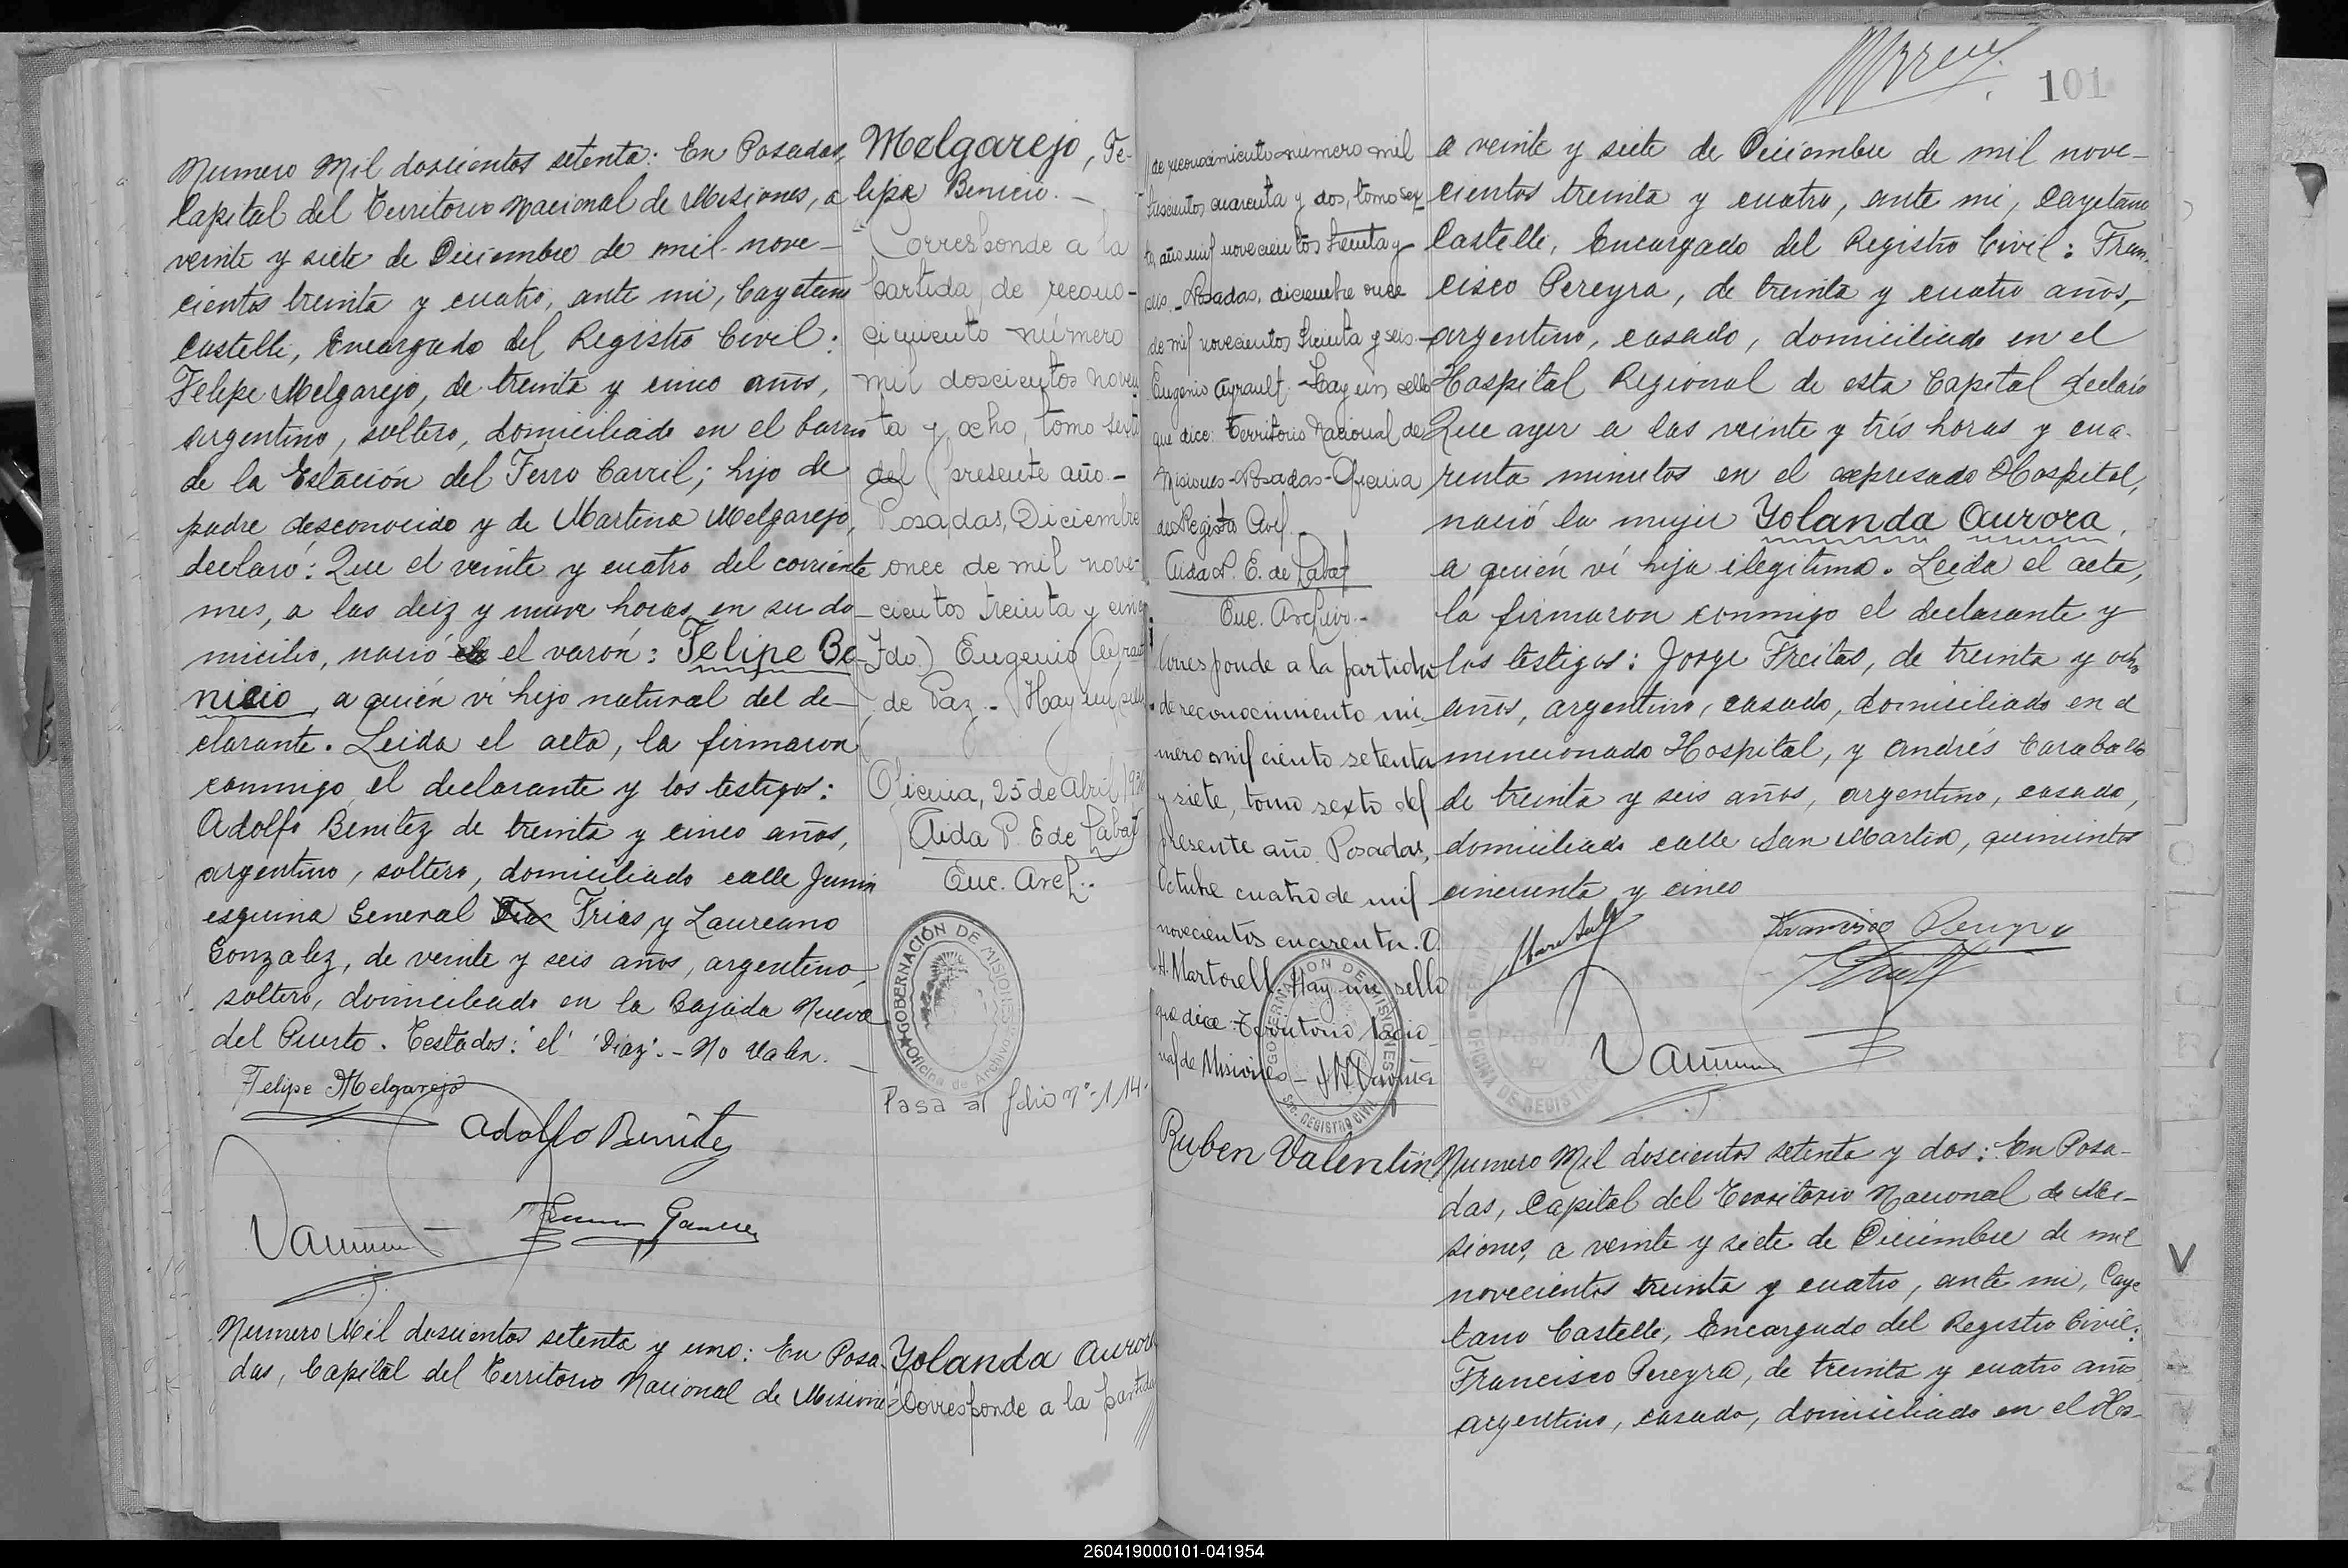 Numero Mil doscientos setenta: En Posadas,
Capital del Territorio Nacional de Misiones, a
veinte y siete de Diciembre de mil nove-
cientos treinta y cuatro, ante mi, Cayetano
Castelli, Encargado del Registro Civil:
Felipe Melgarejo, de treinta y cinco años,
argentino, soltero, domiciliado en el barrio
de la Estación del Ferro Carril; hijo de
padre desconocido y de Martina Melgarejo,
declaró: Que el veinte y cuatro del corriente
mes, a las diez y nueve horas en su do-
micilio, nació el el varón: Felipe Be-
nicio, a quién ví hijo natural del de-
clarante. Leida el acta, la firmaron
conmigo el declarante y los testigos:
Adolfo Benitez de treinta y cinco años,
argentino, soltero, domiciliado calle Junin
esquina General Diaz Frias y Laureano
Gonzalez, de veinte y seis años, argentino,
soltero, domiciliado en la Bajada Nueva
del Puerto. Testados: "el" "Diaz".- No Valen.
Felipe Melgarejo
Adolfo Benitez
Numero Mil doscientos setenta y uno: En Posa-
das, Capital del Territorio Nacional de Misiones
Melgarejo, Fe-
lipe Benicio.-
Corresponde a la
partida de recono-
cimiento número
mil doscientos noven
ta y ocho, tomo sexto
del presente año.-
Posadas, Diciembre
once de mil nove-
cientos treinta y cinco
Fdo.) Eugenio Ayrault
de Paz.- Hay un sello
Oficina, 25 de Abril 193
Aida P. E de Labat
Enc. Arch.-
GOBERNACIÓN DE MISIONES
Oficina de Archivo
Pasa al folio nº 114
Yolanda Aurora
Corresponde a la partida
de reconocimiento número mil
trescientos cuarenta y dos, tomo sex-
to, año mil novecientos treinta y
seis.- Posadas, diciembre once
de mil novecientos treinta y seis.-
Eugenio Ayrault.- Hay un sello
que dice: Territorio Nacional de
Misiones - Posadas - Oficina
de Registro Civil.
Aida P. E. de Labat
Enc. Archivo.-
Corresponde a la partida
de reconocimiento nú-
mero mil ciento setenta
y siete, tomo sexto del
presente año. Posadas,
Octubre cuatro de mil
novecientos cuarenta. O.
H. Martorell. Hay un sello
que dice: Territorio Nacio-
nal de Misiones -
GOBERNACION DE MISIONES
REGISTRO CIVIL
Ruben Valentin
101
a veinte y siete de Diciembre de mil nove-
cientos treinta y cuatro, ante mi, Cayetano
Castelli, Encargado del Registro Civil: Fran-
cisco Pereyra, de treinta y cuatro años,
argentino, casado, domiciliado en el
Hospital Regional de esta Capital declaró
Que ayer a las veinte y trés horas y cua-
renta minutos en el expresado Hospital,
nació la mujer Yolanda Aurora,
a quién ví hija ilegitima. Leida el acta,
la firmaron conmigo el declarante y
los testigos: Jorge Freitas, de treinta y ocho
años, argentino, casado, domiciliado en el
mencionado Hospital, y Andrés Caraballo
de treinta y seis años, argentino, casado,
domiciliado calle San Martin, quinientos
cincuenta y cinco
Francisco Pereyra
OFICINA DE REGISTRO
Numero Mil doscientos setenta y dos: En Posa-
das, Capital del Territorio Nacional de Mi-
siones, a veinte y siete de Diciembre de mil
novecientos treinta y cuatro, ante mi, Caye
tano Castelli, Encargado del Registro Civil:
Francisco Pereyra, de treinta y cuatro años
argentino, casado, domiciliado en el Hos-
V
260419000101-041954